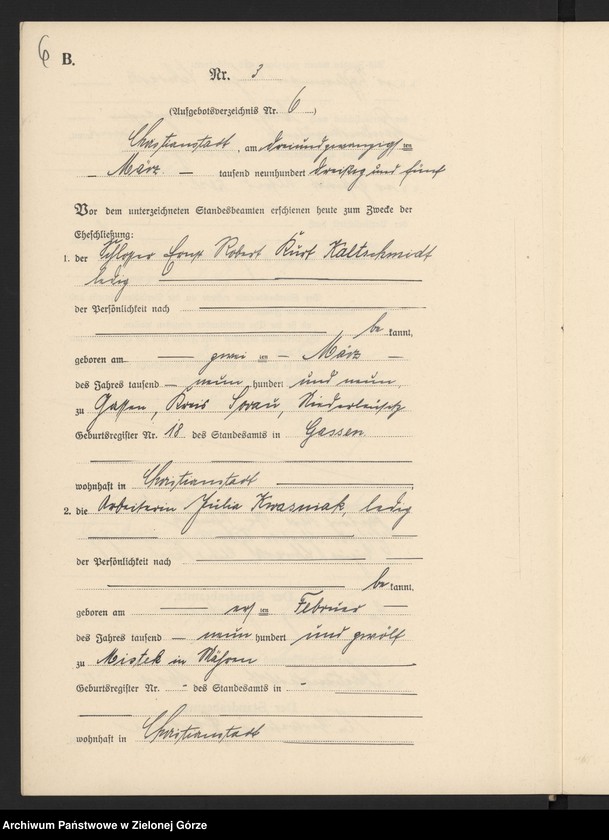 6
B.
Nr. 3
(Aufgebotsverzeichnis Nr. 6)
Christianstadt, am dreiundzwanzigsten
März tausend neunhundert dreißig und fünf
Vor dem unterzeichneten Standesbeamten erschienen heute zum Zwecke der
Eheschließung:
1. der Schlosser Ernst Robert Kurt Kaltschmidt
ledig
der Persönlichkeit nach
bekannt,
geboren am zwei ten März
des Jahres tausend neun hundert und neun
zu Gassen, Kreis Sorau, Niederlausitz
Geburtsregister Nr. 18 des Standesamts in Gassen
wohnhaft in Christianstadt
2. die Arbeiterin Julia Kwasniak, ledig
der Persönlichkeit nach
bekannt,
geboren am ersten Februar
des Jahres tausend neun hundert und zwölf
zu Mistek in Mähren
Geburtsregister Nr. - des Standesamts in -
wohnhaft in Christianstadt
Archiwum Państwowe w Zielonej Górze